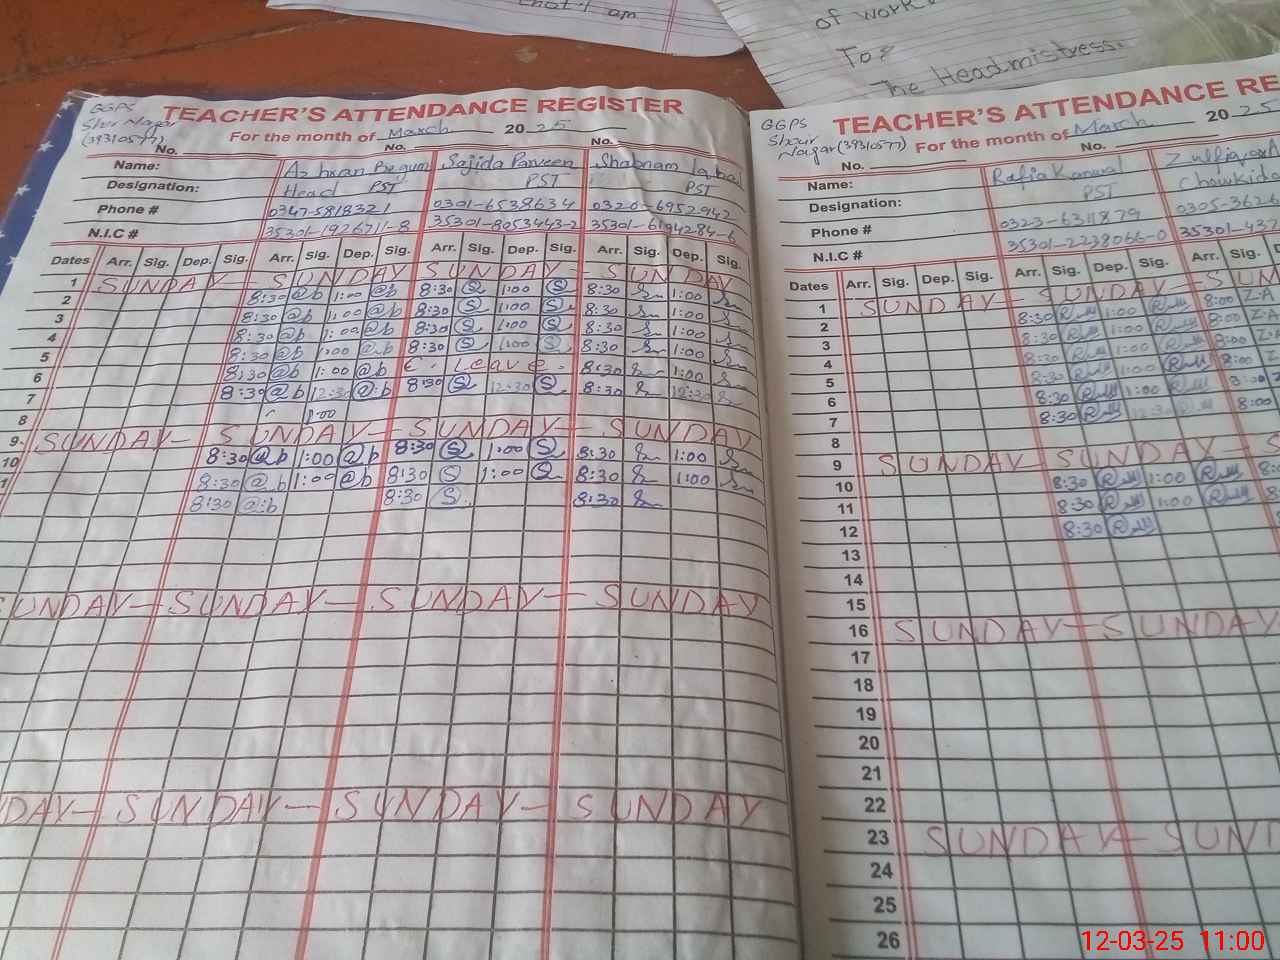 that I am
of work
To:
The Headmistress.
GGPS
Sher Nagar
(39310577)
TEACHER'S ATTENDANCE REGISTER
For the month of March 2025
No. No. No.
Name: Azhran Begum Sajida Parveen Shabnam Iqbal
Designation: Head PST PST PST
Phone # 0347-5818321 0301-6538634 0320-6952942
N.I.C # 35301-1926711-8 35301-8053443-2 35301-6194284-6
Dates Arr. Sig. Dep. Sig. Arr. Sig. Dep. Sig. Arr. Sig. Dep. Sig. Arr. Sig. Dep. Sig.
1 SUNDAY - SUNDAY SUNDAY - SUNDAY
2 8:30 @b 1:00 @b 8:30 S 1:00 S 8:30 1:00
3 8:30 @b 1:00 @b 8:30 S 1:00 S 8:30 1:00
4 8:30 @b 1:00 @b 8:30 S 1:00 S 8:30 1:00
5 8:30 @b 1:00 @b 8:30 S 1:00 S 8:30 1:00
6 8:30 @b 1:00 @b C. Leave. 8:30 1:00
7 8:30 @b 12:30 @b 8:30 S 12:30 S 8:30 12:30
8 1:00
9 SUNDAY - SUNDAY - SUNDAY - SUNDAY
10 8:30 @b 1:00 @b 8:30 S 1:00 S 8:30 1:00
1 8:30 @b 1:00 @b 8:30 S 1:00 S 8:30 1:00
8:30 @b 8:30 S 8:30
SUNDAY - SUNDAY - SUNDAY - SUNDAY
DAY - SUNDAY - SUNDAY - SUNDAY
GGPS
Sher
Nagar (39310577)
TEACHER'S ATTENDANCE RE
For the month of March 2025
No. No.
Name: Rafia Kanwal
Designation: PST Chowkida
Phone # 0323-6311879 0305-3626
N.I.C # 35301-2238066-0 35301-437
Dates Arr. Sig. Dep. Sig. Arr. Sig. Dep. Sig. Arr. Sig.
1 SUNDAY - SUNDAY - SUN
2 8:30 1:00 8:00 Z.A
3 8:30 1:00 8:00 Z.A
4 8:30 1:00 8:00 Z.A
5 8:30 1:00 8:00
6 8:30 1:00 8:00
7 8:30 12:30 8:00
8
9 SUNDAY - SUNDAY - S
10 8:30 1:00
11 8:30 1:00
12 8:30
13
14
15
16 SUNDAY - SUNDAY
17
18
19
20
21
22
23 SUNDAY - SUN
24
25
26
12-03-25 11:00